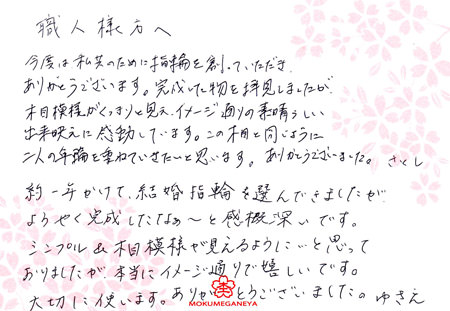 職人様方へ
今度は私共のために指輪を創っていただき
ありがとうございます。完成した物を拝見しましたが、
木目模様がくっきりと見え、イメージ通りの素晴らしい
出来映えに感動しています。この木目と同じように
二人の年輪を重ねていきたいと思います。ありがとうございました。さくし
約一年かけて、結婚指輪を選んできましたが
ようやく完成したなぁ〜と感慨深いです。
シンプル&木目模様が見えるようにいと思って
おりましたが、本当にイメージ通りで嬉しいです。
大切に使います。ありがとうございましたの ゆきえ
MOKUMEGANEYA